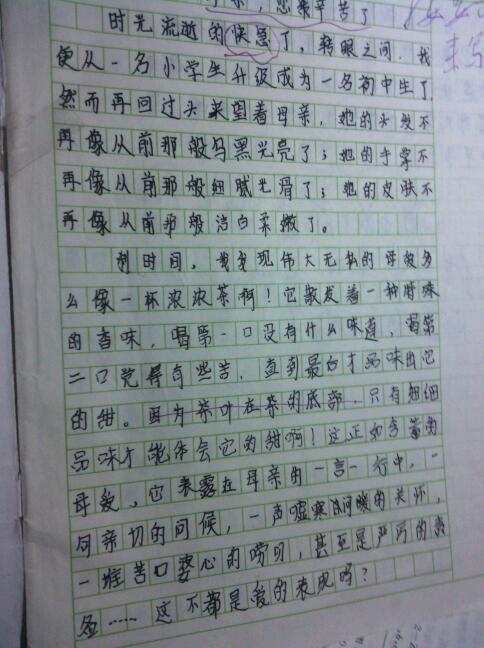 您亲辛苦了
时光流逝的快急了，转眼之间，我
便从一名小学生升级成为一名初中生了
然而再回过头来望着母亲，她的头发不
再像从前那般乌黑光亮了；她的手掌不
再像从前那般细腻光滑了；她的皮肤不
再像从前那般洁白柔嫩了。
刹时间，我发现伟大无私的母爱多
么像一杯浓浓茶啊！它散发着一种特殊
的香味，喝第一口没有什么味道，喝第
二口觉得有些苦，直到最后才品味出它
的甜。因为茶叶在茶的底部，只有细细
品味才能体会它的甜啊！这正如含蓄的
母爱，它表露在母亲的一言一行中，一
句亲切的问候，一声嘘寒问暖的关怀，
一堆苦口婆心的唠叨，甚至是严厉的责
备……这不都是爱的表现吗？